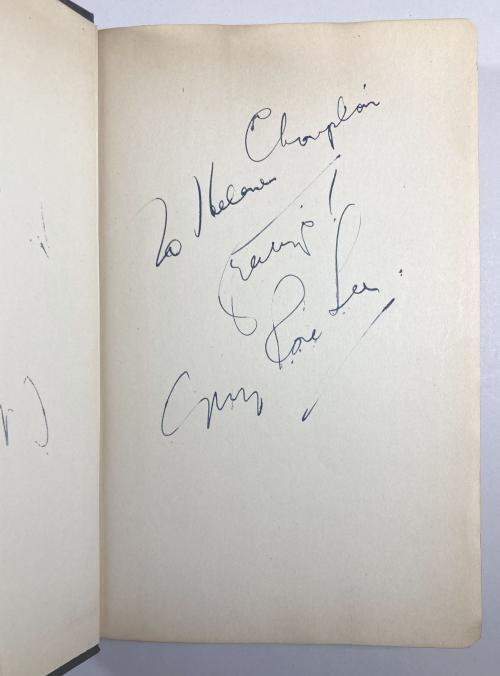 To Helene Champlain
Greetings!
Gypsy Rose Lee.